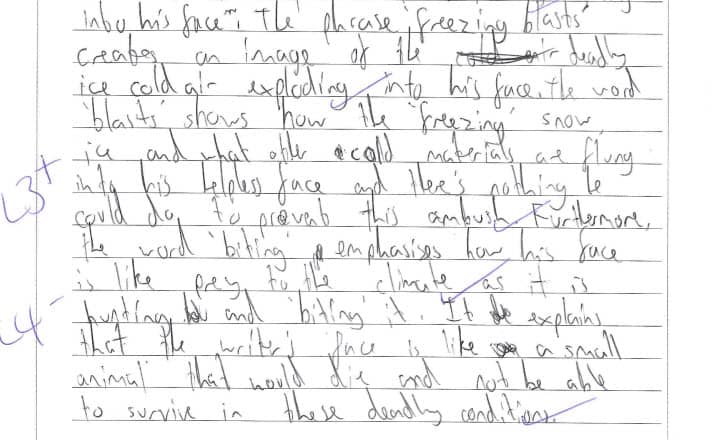 into his face". The phrase 'freezing blasts'
creates an image of the deadly
ice cold air exploding into his face. The word
'blasts' shows how the 'freezing' snow
ice and what other cold materials are flung
into his helpless face and there's nothing he
L3+
could do to prevent this ambush. Furthermore,
the word 'biting' emphasises how his face
is like prey to the climate as it is
L4-
hunting and 'biting' it. It explains
that the writer's face is like a small
animal that would die and not be able
to survive in these deadly conditions.